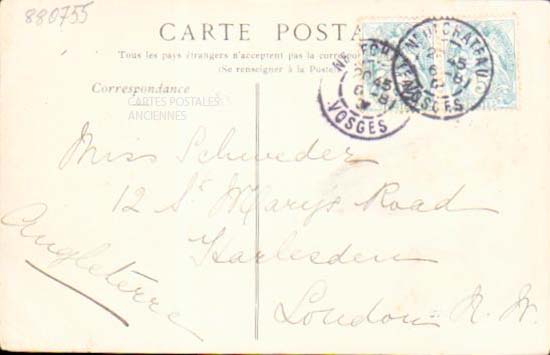 880755
CARTE POSTA
Tous les pays étrangers n'acceptent pas la correspo
(Se renseigner à la Poste
Correspondance
CARTES POSTALES
ANCIENNES
NEUFCHATEAU
VOSGES
VOSGES
Miss Schweder
12 St Mary's Road
Harlesden
London N. W.
Angleterre